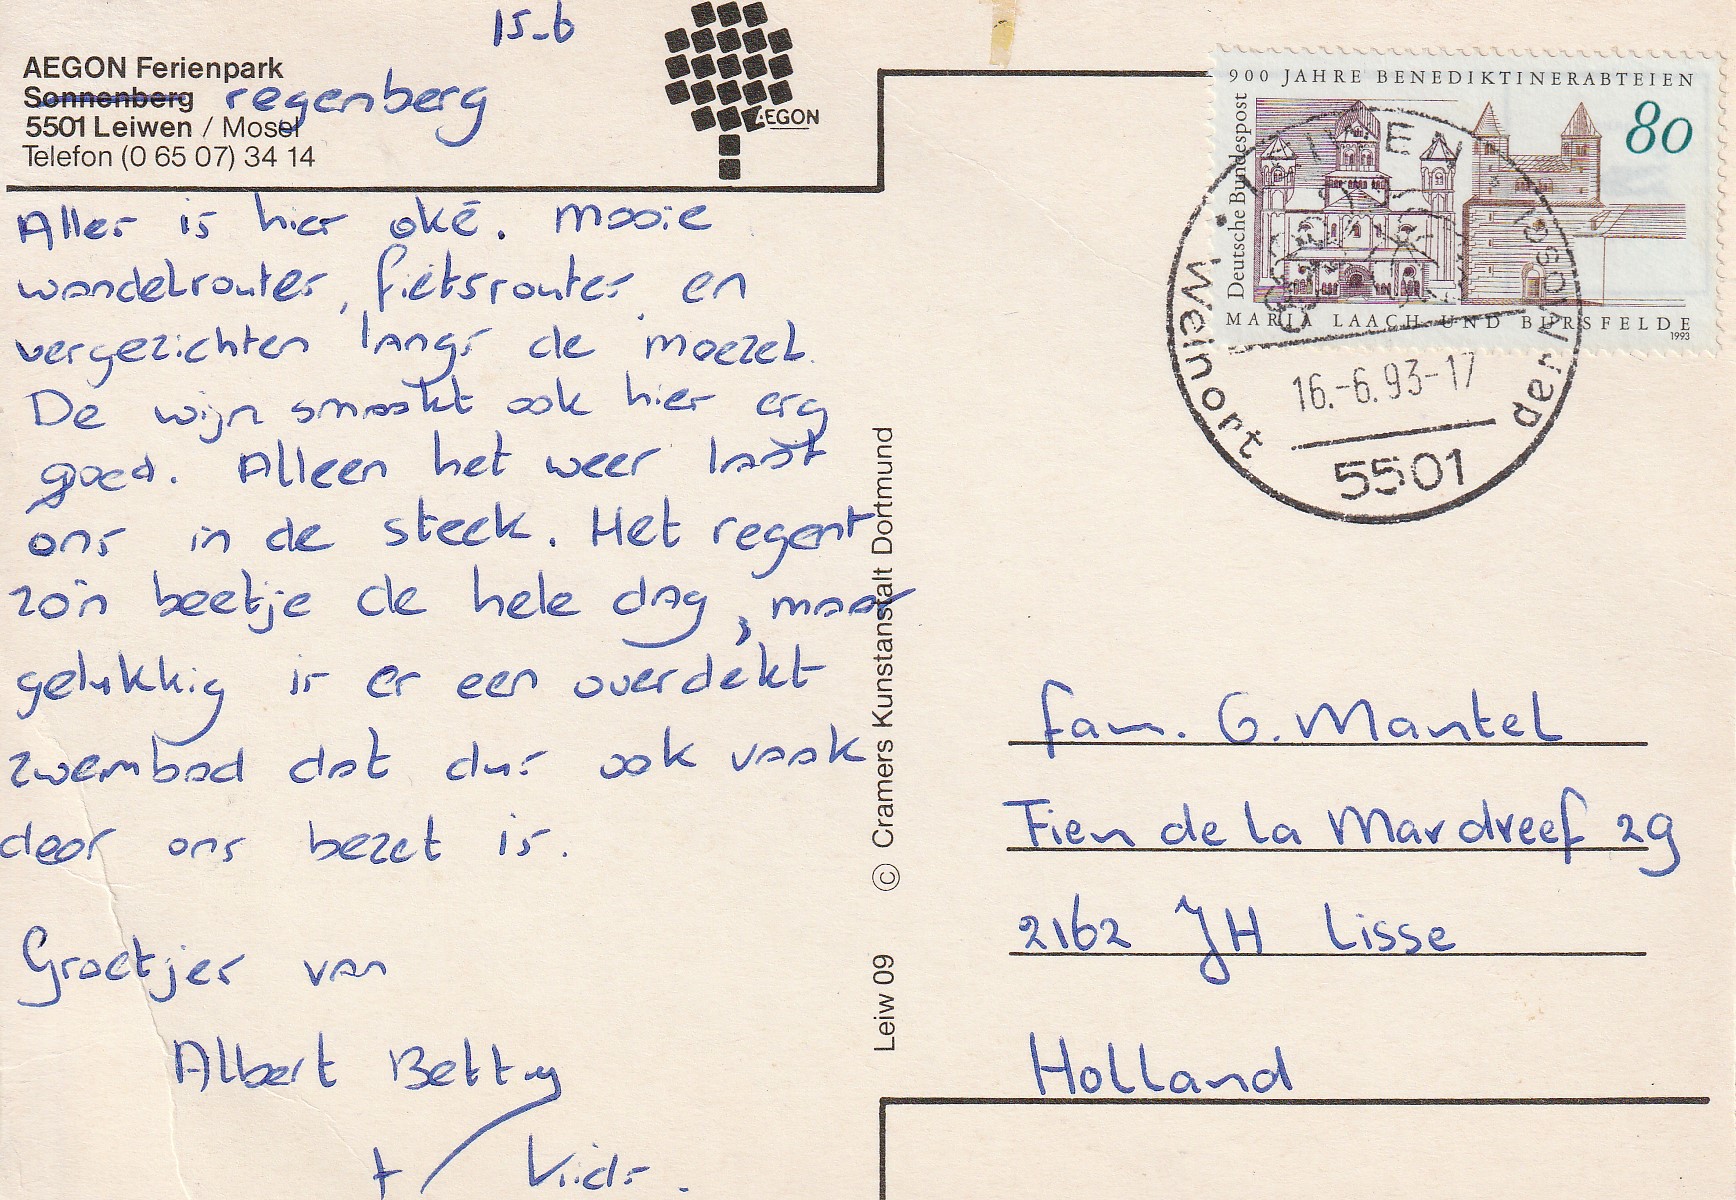 15-6
AEGON Ferienpark
Sonnenberg regenberg
5501 Leiwen / Mosel
Telefon (0 65 07) 34 14
AEGON
Alles is hier oké. mooie
wandelroutes, fietsroutes en
vergezichten langs de moezel.
De wijn smaakt ook hier erg
goed. Alleen het weer laat
ons in de steek. Het regent
zo'n beetje de hele dag, maar
gelukkig is er een overdekt
zwembad dat dus ook vaak
door ons bezet is.
Groetjes van
Albert Betty
+ Kids.
Leiw 09 © Cramers Kunstanstalt Dortmund
900 JAHRE BENEDIKTINERABTEIEN
80
Deutsche Bundespost
MARIA LAACH UND BURSFELDE
1993
LEIWEN
Weinort
der
16.-6.93-17
5501
fam. G. Mantel
Fien de la Mardreef 29
2162 JH Lisse
Holland